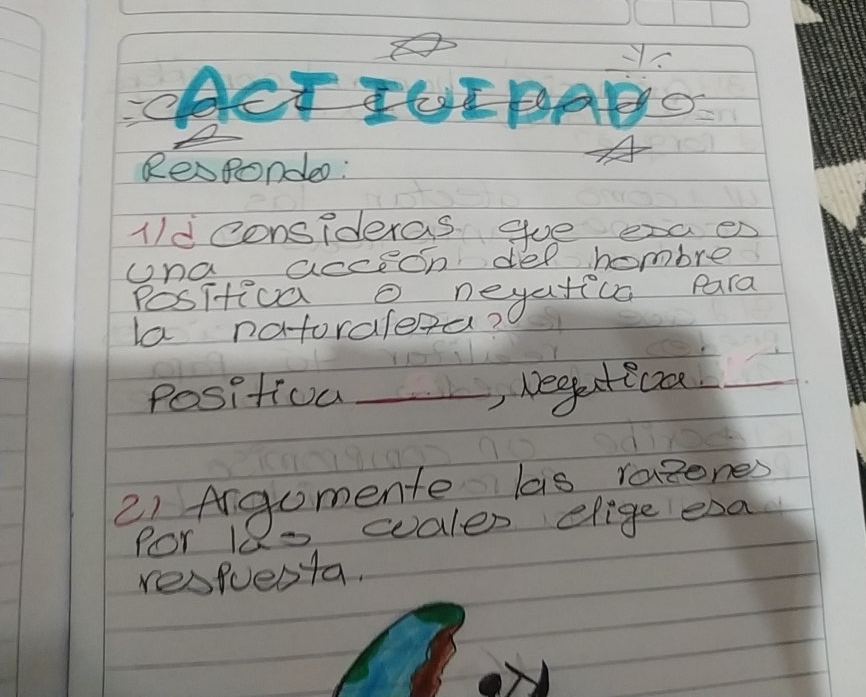 ACTIVIDAD
Responde:
1) ¿Consideras que esa es
una acción del hombre
Positiva o negativa Para
la naturaleza?
Positiva ______, Negativa ______.
2) Argumente las razones
Por las cuales elige esa
respuesta.